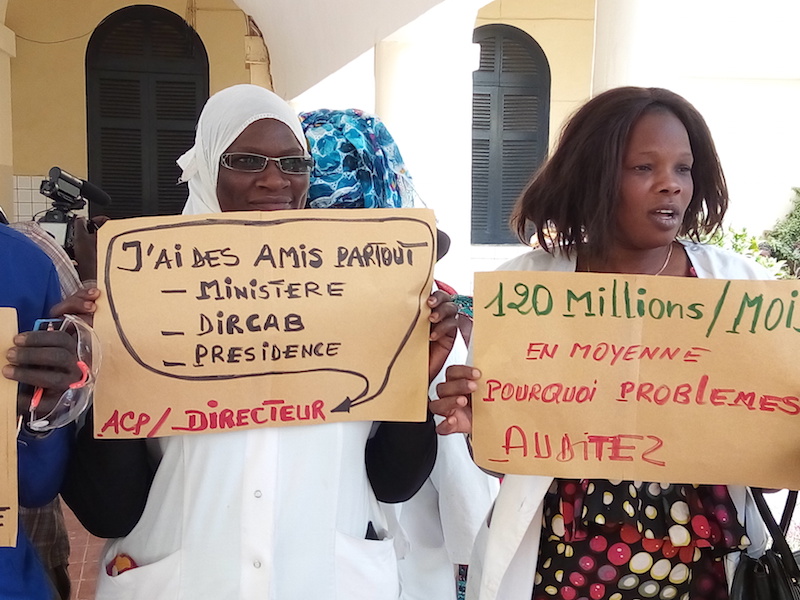 J'AI DES AMIS PARTOUT
– MINISTERE
– DIRCAB
– PRESIDENCE
ACP/ DIRECTEUR
120 Millions/MOIS
EN MOYENNE
POURQUOI PROBLEMES
AUDITEZ